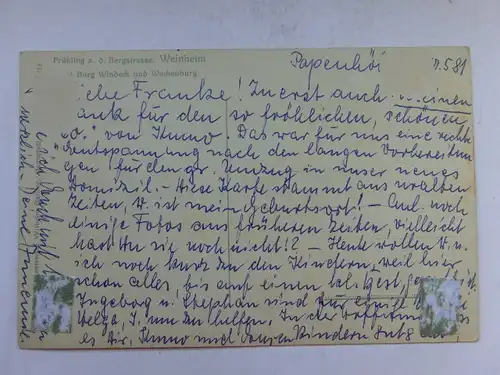 Frühling a. d. Bergstrasse. Weinheim
Burg Windeck und Wachenburg
Papenhöi
7.5.81
iebe Franke! Zuerst auch meinen
ank für den so fröhlichen, schönen
von Kuno. Das war für uns eine rechte
Entspannung nach den langen Vorbereitun
gen für den gr. Umzug in unser neues
Domizil. - Diese Karte stammt aus uralten
Zeiten, W. ist mein Geburtsort! - Anl. noch
einige Fotos aus früheren Zeiten, vielleicht
hast Du sie noch nicht!? - Heute wollen W. u.
ich noch kurz zu den Kindern, weil hier
schon alles, bis auf einen kl. Rest,
Ingeborg u. Stephan sind
Helga, J. um zu helfen. In der Hoffnung
es Dir, Kuno und Kindern gut